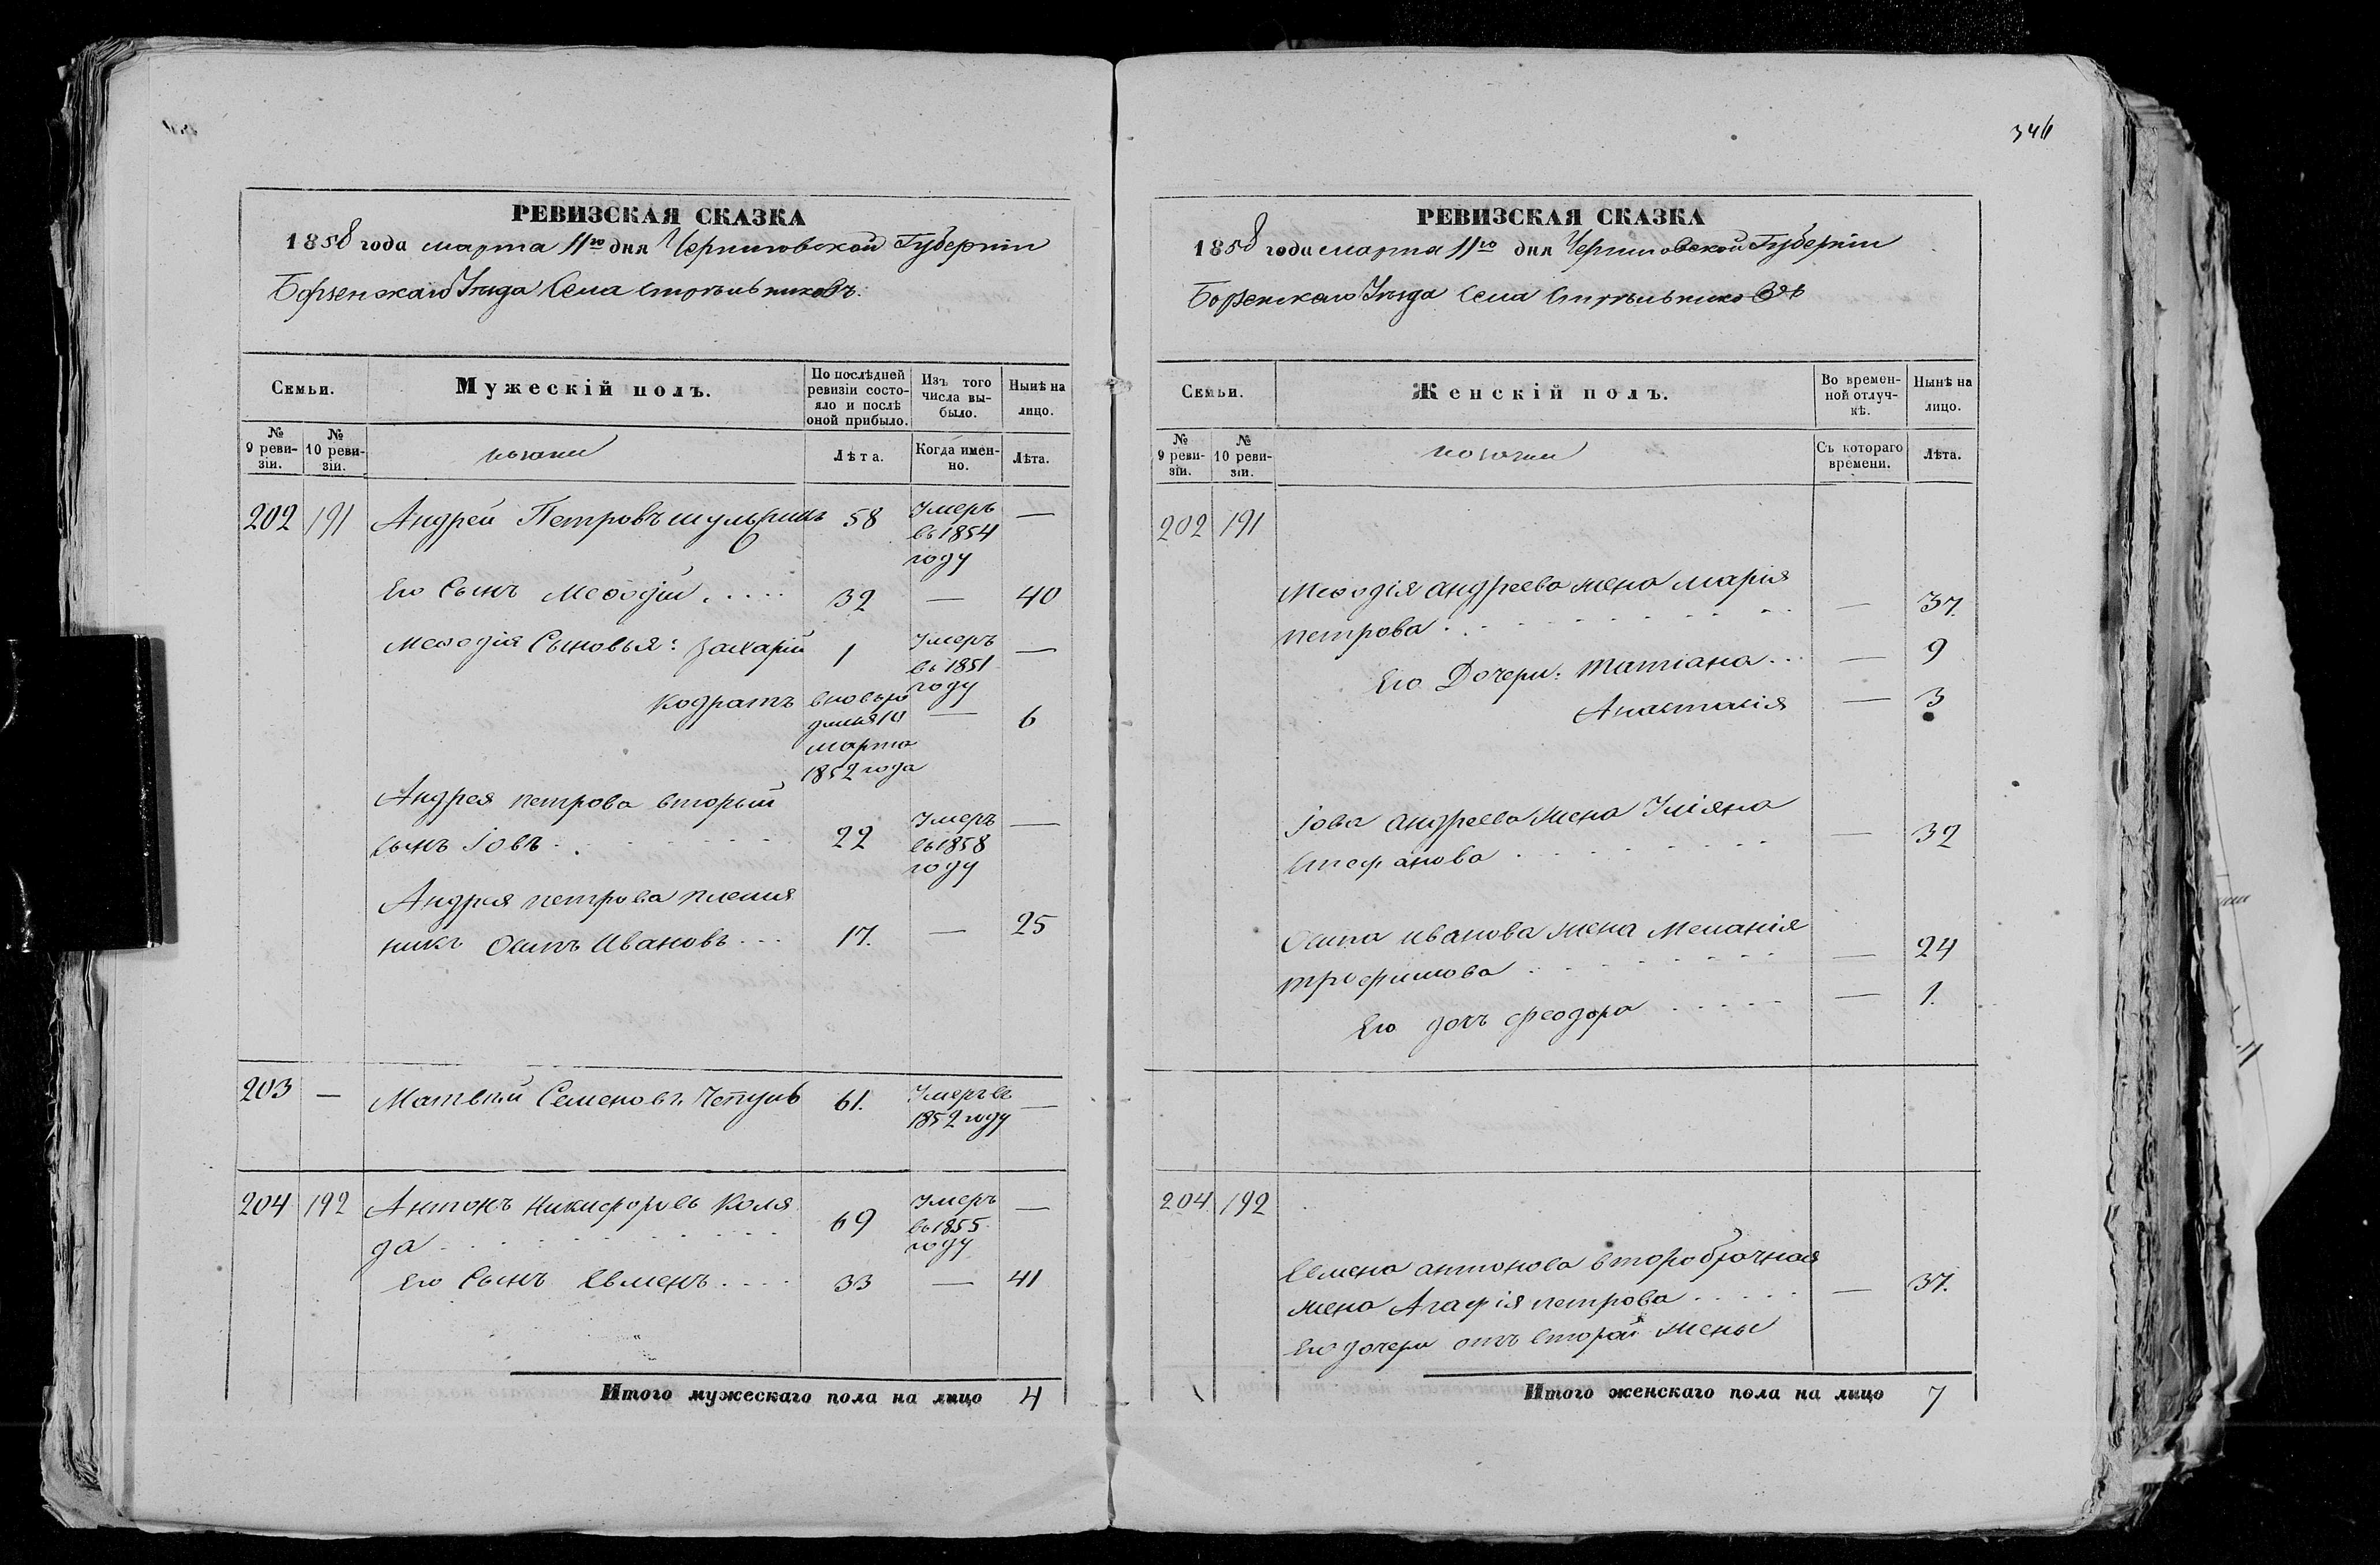 РЕВИЗСКАЯ СКАЗКА
1858 года марта 11го дня Черниговской Губернии
Борзенскаго Уѣзда Села Стрѣльниковъ.
Семьи.
Мужескій полъ.
По послѣдней ревизіи состояло и послѣ оной прибыло.
Изъ того числа выбыло.
Нынѣ на лицо.
№ 9 ревизіи.
№ 10 ревизіи.
козаки
Лѣта.
Когда именно.
Лѣта.
202 191 Андрей Петровъ 58 Умеръ въ 1854 году —
Его Сынъ Меѳодій . . . . . 32 — 40
Меѳодія Сыновья: Захарій 1 Умеръ въ 1851 году —
Кодратъ 10 марта 1852 года — 6
Андрея Петрова вторый
сынъ Іовъ . . . 22 Умеръ въ 1858 году —
Андрея Петрова племян
никъ Осипъ Ивановъ . . . 17. — 25
203 — Матвѣй Семеновъ 61. Умеръ въ 1852 году —
204 192 Антонъ Никифоровъ Коля
да . . . 69 Умеръ въ 1855 году —
Его Сынъ Евменъ . . . . 33 — 41
Итого мужескаго пола на лицо 4
346
РЕВИЗСКАЯ СКАЗКА
1858 года марта 11го дня Черниговской Губерніи
Борзенскаго Уѣзда Села Стрѣльниковъ
Семьи.
Женскій полъ.
Во временной отлучкѣ.
Нынѣ на лицо.
№ 9 ревизіи.
№ 10 ревизіи.
козачки
Съ котораго времени.
Лѣта.
202 191
Меѳодія Андреева жена Марія
Петрова . . . — 37.
Его Дочери: Татіана . . . — 9
Анастасія — 3
Іова Андреева жена Уліяна
Стефанова . . . — 32
Осипа Иванова жена Меланія
Трофимова . . . — 24
Его дочь Феодора . . . . . — 1.
204 192
Евмена Антонова второбрачная
жена Агафія Петрова . . . . . — 37.
Его дочери отъ второй жены
Итого женскаго пола на лицо 7